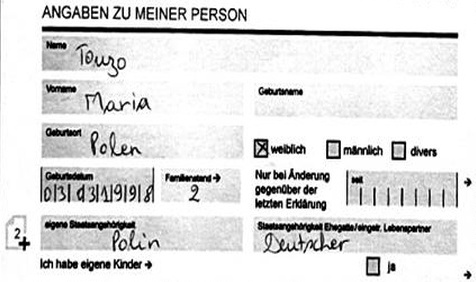 ANGABEN ZU MEINER PERSON
Name
Touzo
Vorname
Maria
Geburtsname
Geburtsort
Polen
weiblich männlich divers
Geburtsdatum
03031998
Familienstand →
2
Nur bei Änderung
gegenüber der
letzten Erklärung
seit
→
2+
eigene Staatsangehörigkeit
Polin
Staatsangehörigkeit Ehegatte/eingetr. Lebenspartner
Deutscher
Ich habe eigene Kinder →
ja
→